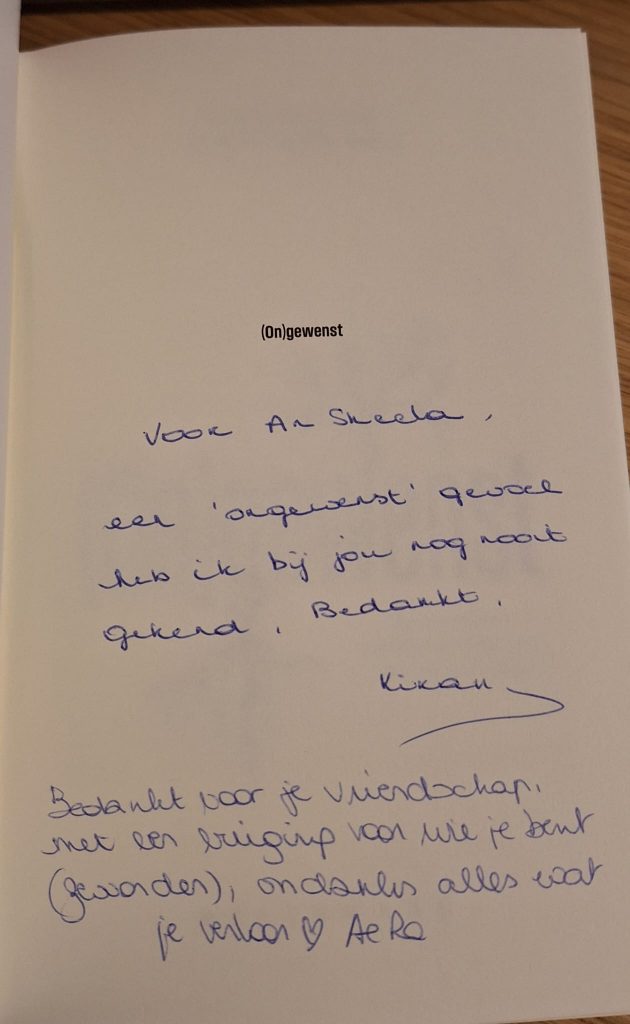 (On)gewenst
Voor An Sheela,
een 'ongewenst' gevoel
heb ik bij jou nog nooit
gekend. Bedankt.
Kiran
Bedankt voor je vriendschap,
met een buiging voor wie je bent
(geworden), ondanks alles wat
je verloor ♡ AeRa